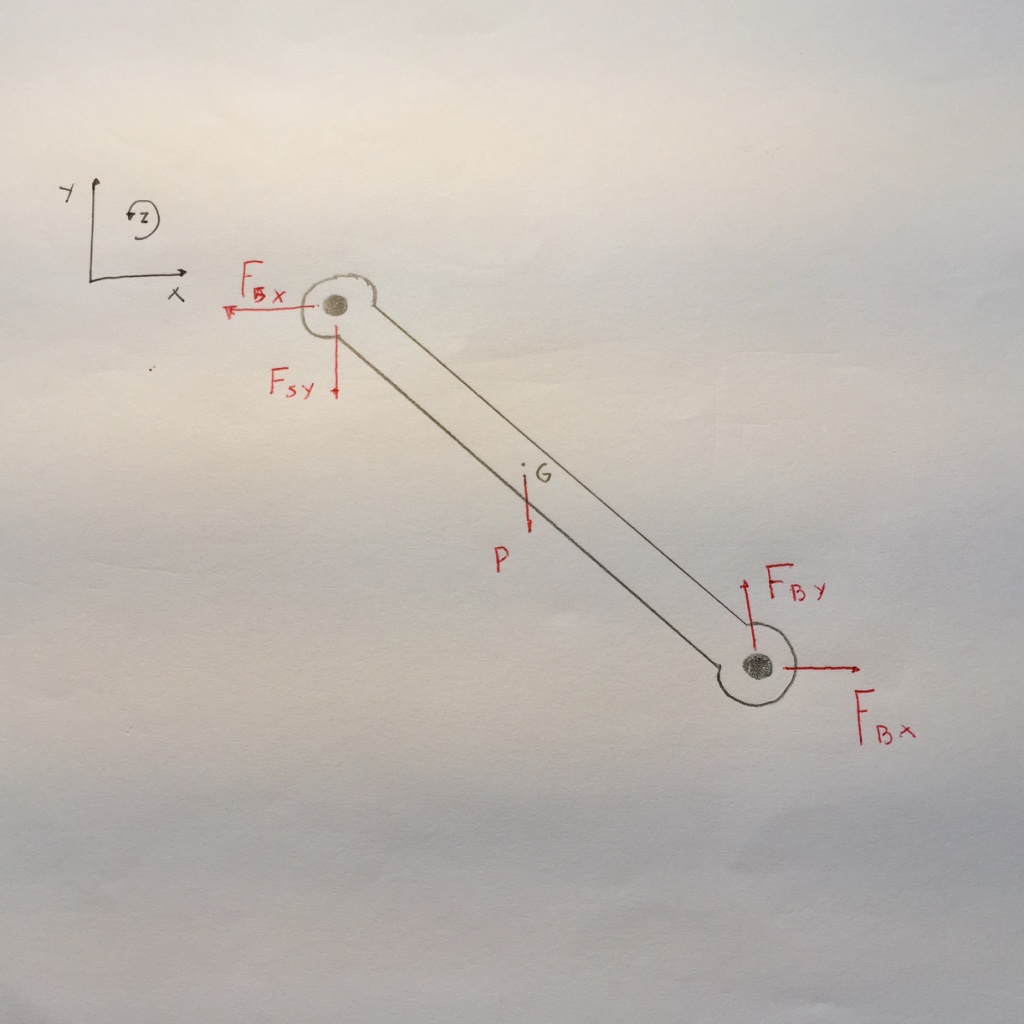 Y
Z
X
FBX
FSY
G
P
FBY
FBX